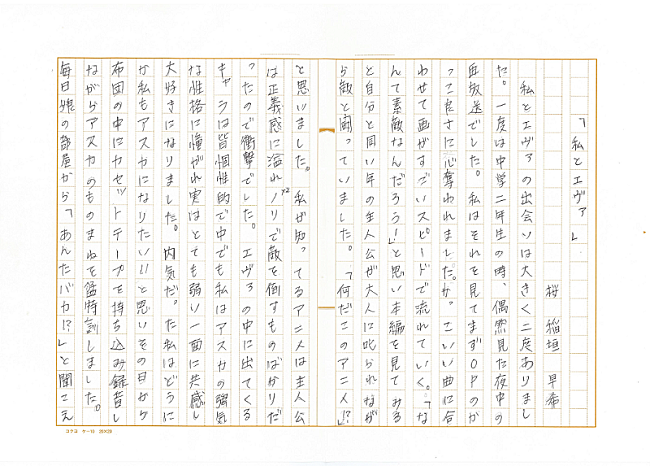 「私とエヴァ」
桜 稲垣 早希
私とエヴァの出会いは大きく二度ありまし
た。一度は中学二年生の時、偶然見た夜中の
再放送でした。私はそれを見てまずOPのか
っこよさに心奪われました。か。こいい曲に合
わせて画がすごいスピードで流れていく。「な
んて素敵なんだろう!」と思い本編を見てみる
と自分と同い年の主人公が大人に叱られなが
ら敵と闘っていました。「何だこのアニメ!?」
と思いました。私が知ってるアニメは主人公
は正義感に溢れノリノリで敵を倒すものばかりだ
ったので衝撃でした。エヴァの中に出てくる
キャラは皆個性的で中でも私はアスカの強気
な性格に憧がれ実はとても弱い一面に共感し
大好きになりました。内気だ。た私はどうに
か私もアスカになりたい!!と思いその日から
布団の中にカセットテープを持ち込み録音し
ながらアスカのものまねを猛特訓しました。
毎日娘の部屋から「あんたバカ!?」と聞こえ
コクヨ ケ-10 20×20